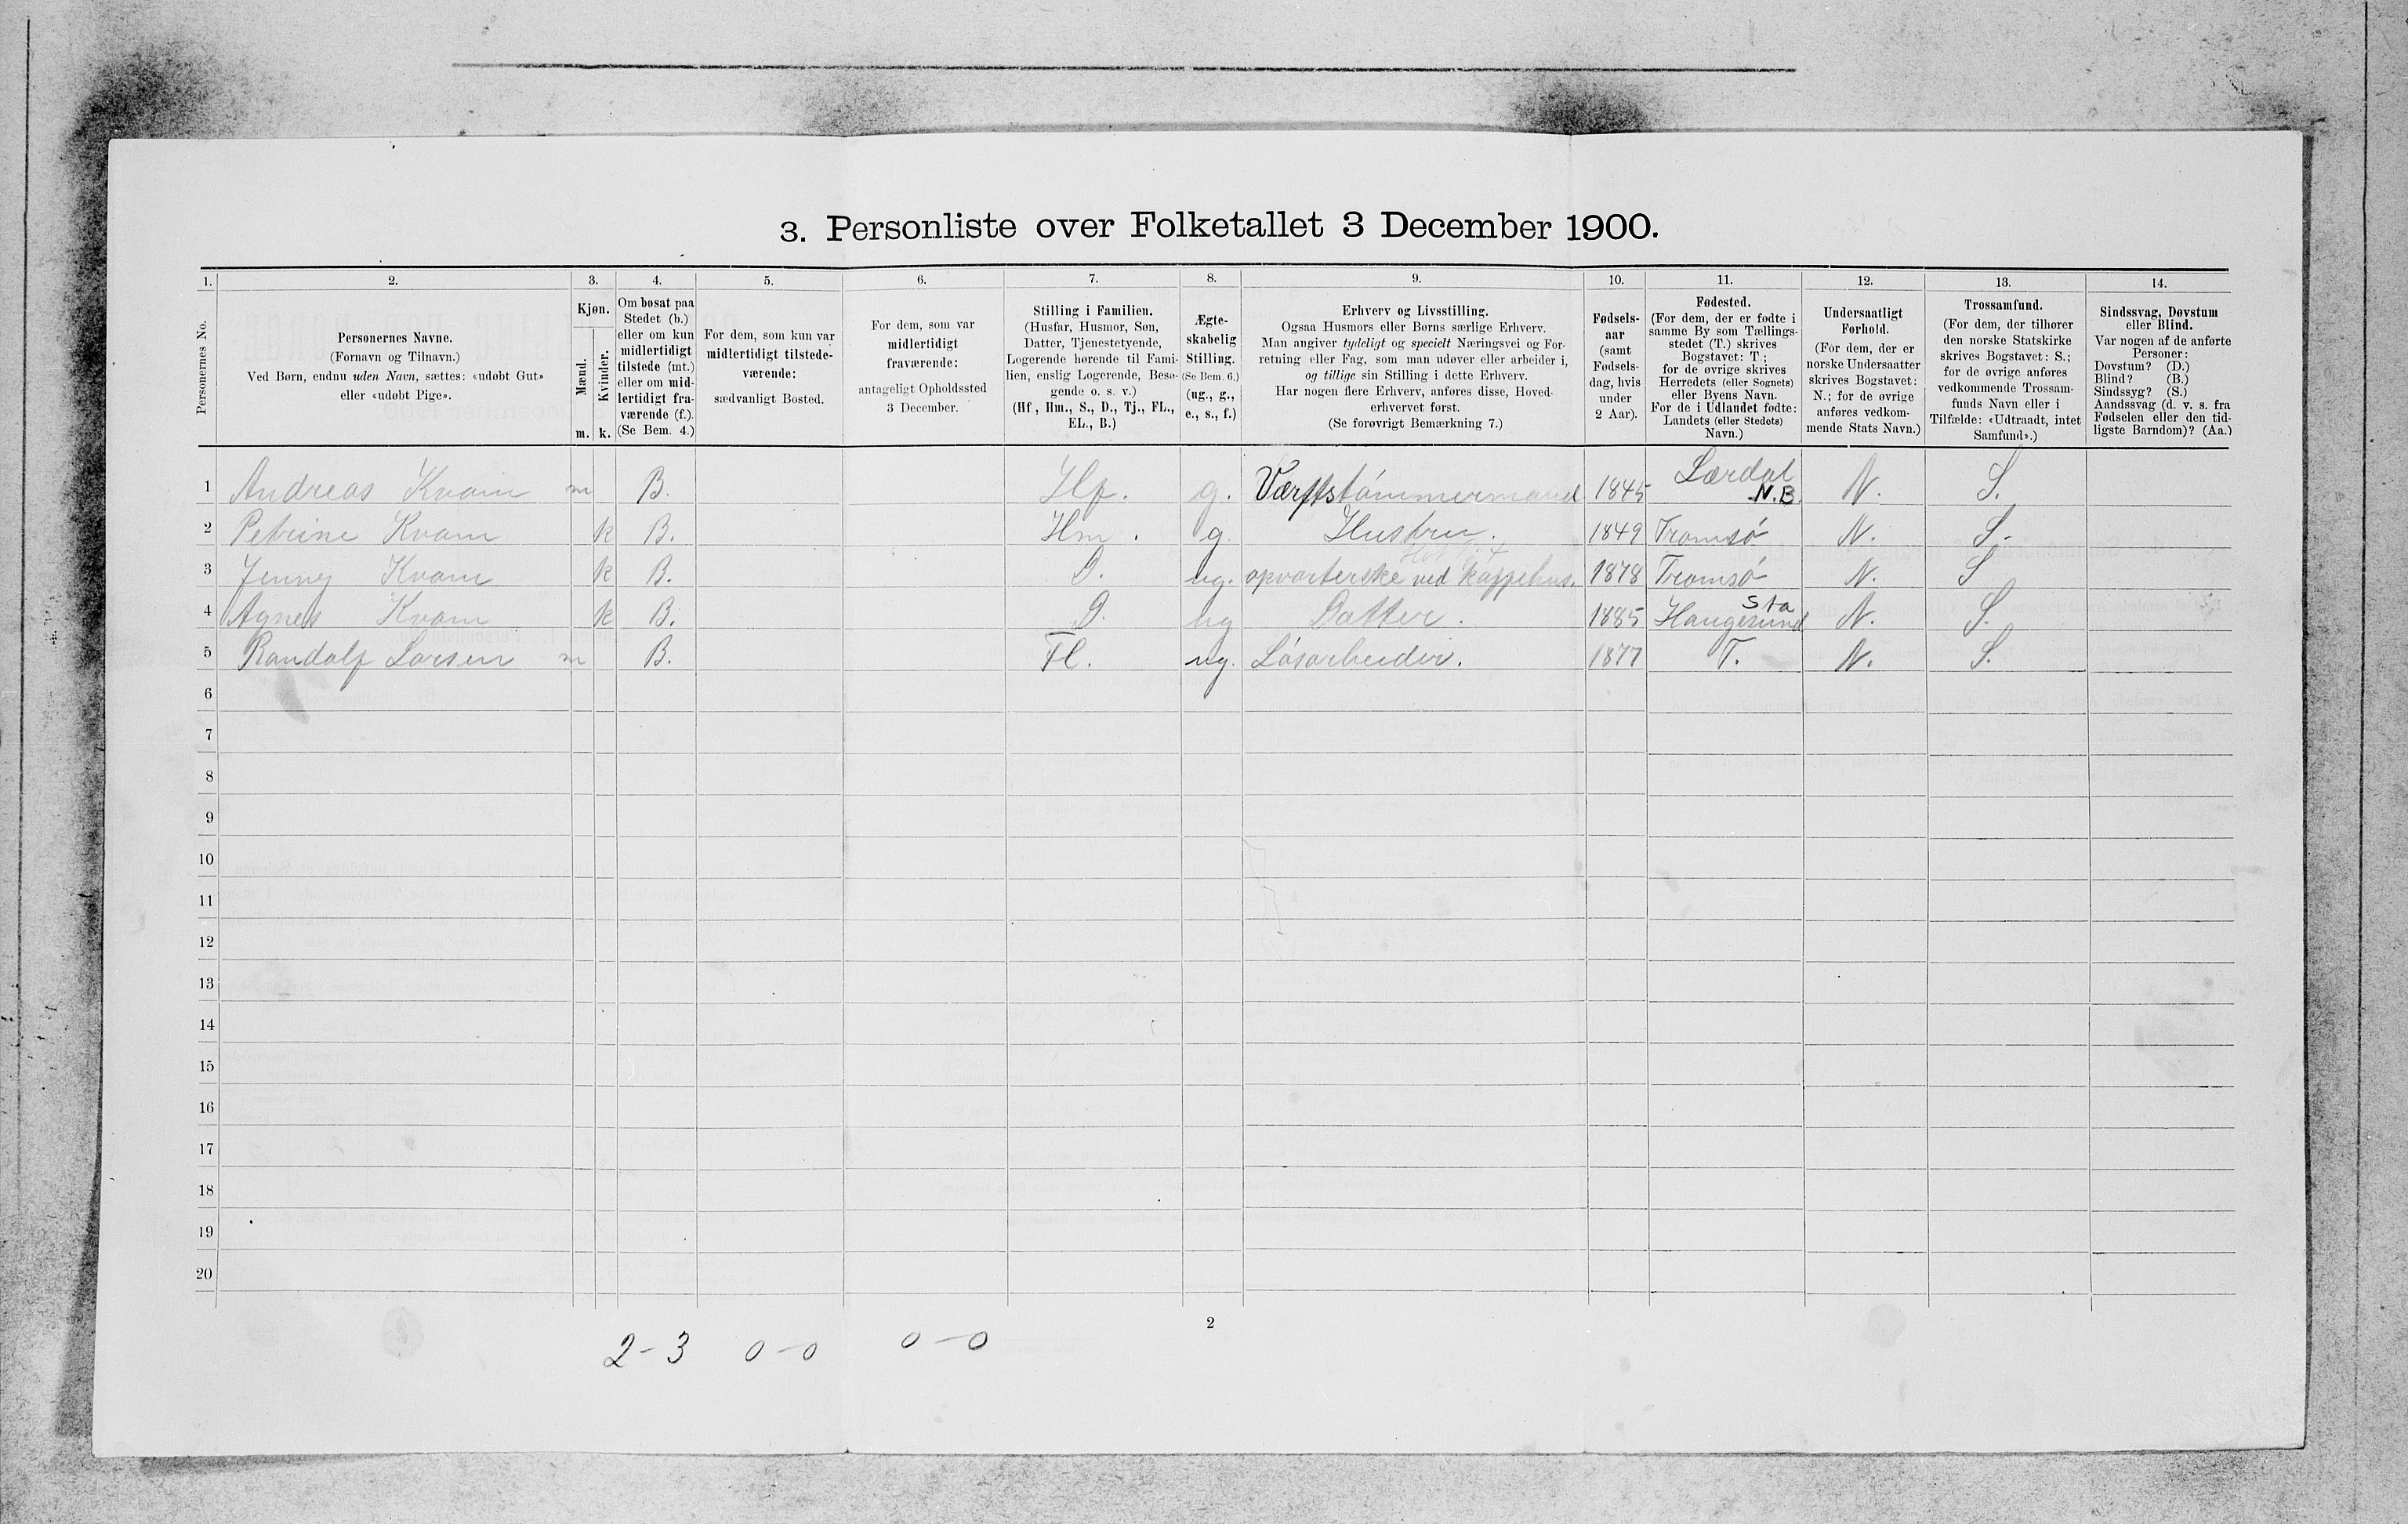 3. Personliste over Folketallet 3 December 1900.
1. 2. 3. 4. 5. 6. 7. 8. 9. 10. 11. 12. 13. 14.
Personernes No.
Personernes Navne.
(Fornavn og Tilnavn.)
Ved Børn, endnu uden Navn, sættes: «udøbt Gut»
eller «udøbt Pige».
Kjøn.
Mænd.
Kvinder.
m. k.
Om bosat paa
Stedet (b.)
eller om kun
midlertidigt
tilstede (mt.)
eller om mid-
lertidigt fra-
værende (f.).
(Se Bem. 4.)
For dem, som kun var
midlertidigt tilstede-
værende:
sædvanligt Bosted.
For dem, som var
midlertidigt
fraværende:
antageligt Opholdssted
3 December.
Stilling i Familien.
(Husfar, Husmor, Søn,
Datter, Tjenestetyende,
Logerende hørende til Fami-
lien, enslig Logerende, Besø-
gende o. s. v.)
(Hf., Hm., S., D., Tj., FL.,
EL., B.)
Ægte-
skabelig
Stilling.
(Se Bem. 6.)
(ug., g.,
e., s., f.)
Erhverv og Livsstilling.
Ogsaa Husmors eller Børns særlige Erhverv.
Man angiver tydeligt og specielt Næringsvei og For-
retning eller Fag, som man udøver eller arbeider i,
og tillige sin Stilling i dette Erhverv.
Har nogen flere Erhverv, anføres disse, Hoved-
erhvervet først.
(Se forøvrigt Bemærkning 7.)
Fødsels-
aar
(samt
Fødsels-
dag, hvis
under
2 Aar).
Fødested.
(For dem, der er fødte i
samme By som Tællings-
stedet (T.) skrives
Bogstavet: T.;
for de øvrige skrives
Herredets (eller Sognets)
eller Byens Navn.
For de i Udlandet fødte:
Landets (eller Stedets)
Navn.)
Undersaatligt
Forhold.
(For dem, der er
norske Undersaatter
skrives Bogstavet:
N.; for de øvrige
anføres vedkom-
mende Stats Navn.)
Trossamfund.
(For dem, der tilhører
den norske Statskirke
skrives Bogstavet: S.;
for de øvrige anføres
vedkommende Trossam-
funds Navn eller i
Tilfælde: «Udtraadt, intet
Samfund».)
Sindssvag, Døvstum
eller Blind.
Var nogen af de anførte
Personer:
Døvstum? (D.)
Blind? (B.)
Sindssyg? (S.)
Aandssvag (d. v. s. fra
Fødselen eller den tid-
ligste Barndom)? (Aa.)
1 Andreas Kvam m B. Hf. g. Værftstømmermand 1845 Lærdal N.B. N. S.
2 Petrine Kvam k B. Hm. g. Hustru. 1849 Tromsø N. S.
3 Jenny Kvam k B. D. ug. opvarterske ved Kaffehus. 1878 Tromsø N. S
4 Agnes Kvam k B. D. ug Datter. 1885 Haugesund Sta N. S.
5 Randolf Larsen m B. Fl. ug. Løsarbeider. 1877 T. N. S.
6
7
8
9
10
11
12
13
14
15
16
17
18
19
20
2
2-3 0-0 0-0